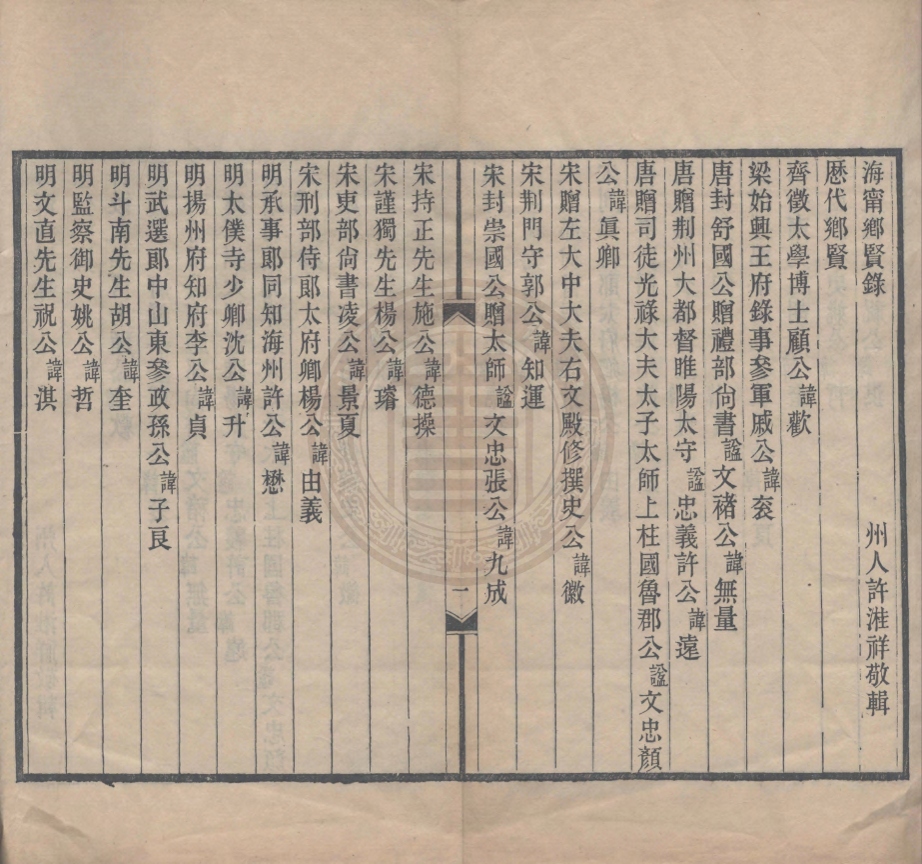 海甯鄉賢錄　　　州人許溎祥敬輯
歷代鄉賢
齊徵太學博士顧公諱歡
梁始興王府錄事參軍戚公諱衮
唐封舒國公贈禮部尙書諡文褚公諱無量
唐贈荆州大都督睢陽太守諡忠義許公諱遠
唐贈司徒光祿大夫太子太師上柱國魯郡公諡文忠顏
公諱眞卿
宋贈左大中大夫右文殿修撰史公諱徽
宋荆門守郭公諱知運
宋封崇國公贈太師諡文忠張公諱九成
一
宋持正先生施公諱德操
宋謹獨先生楊公諱璿
宋吏部尙書凌公諱景夏
宋刑部侍郎太府卿楊公諱由義
明承事郎同知海州許公諱懋
明太僕寺少卿沈公諱升
明揚州府知府李公諱貞
明武選郎中山東參政孫公諱子良
明斗南先生胡公諱奎
明監察御史姚公諱哲
明文直先生祝公諱淇